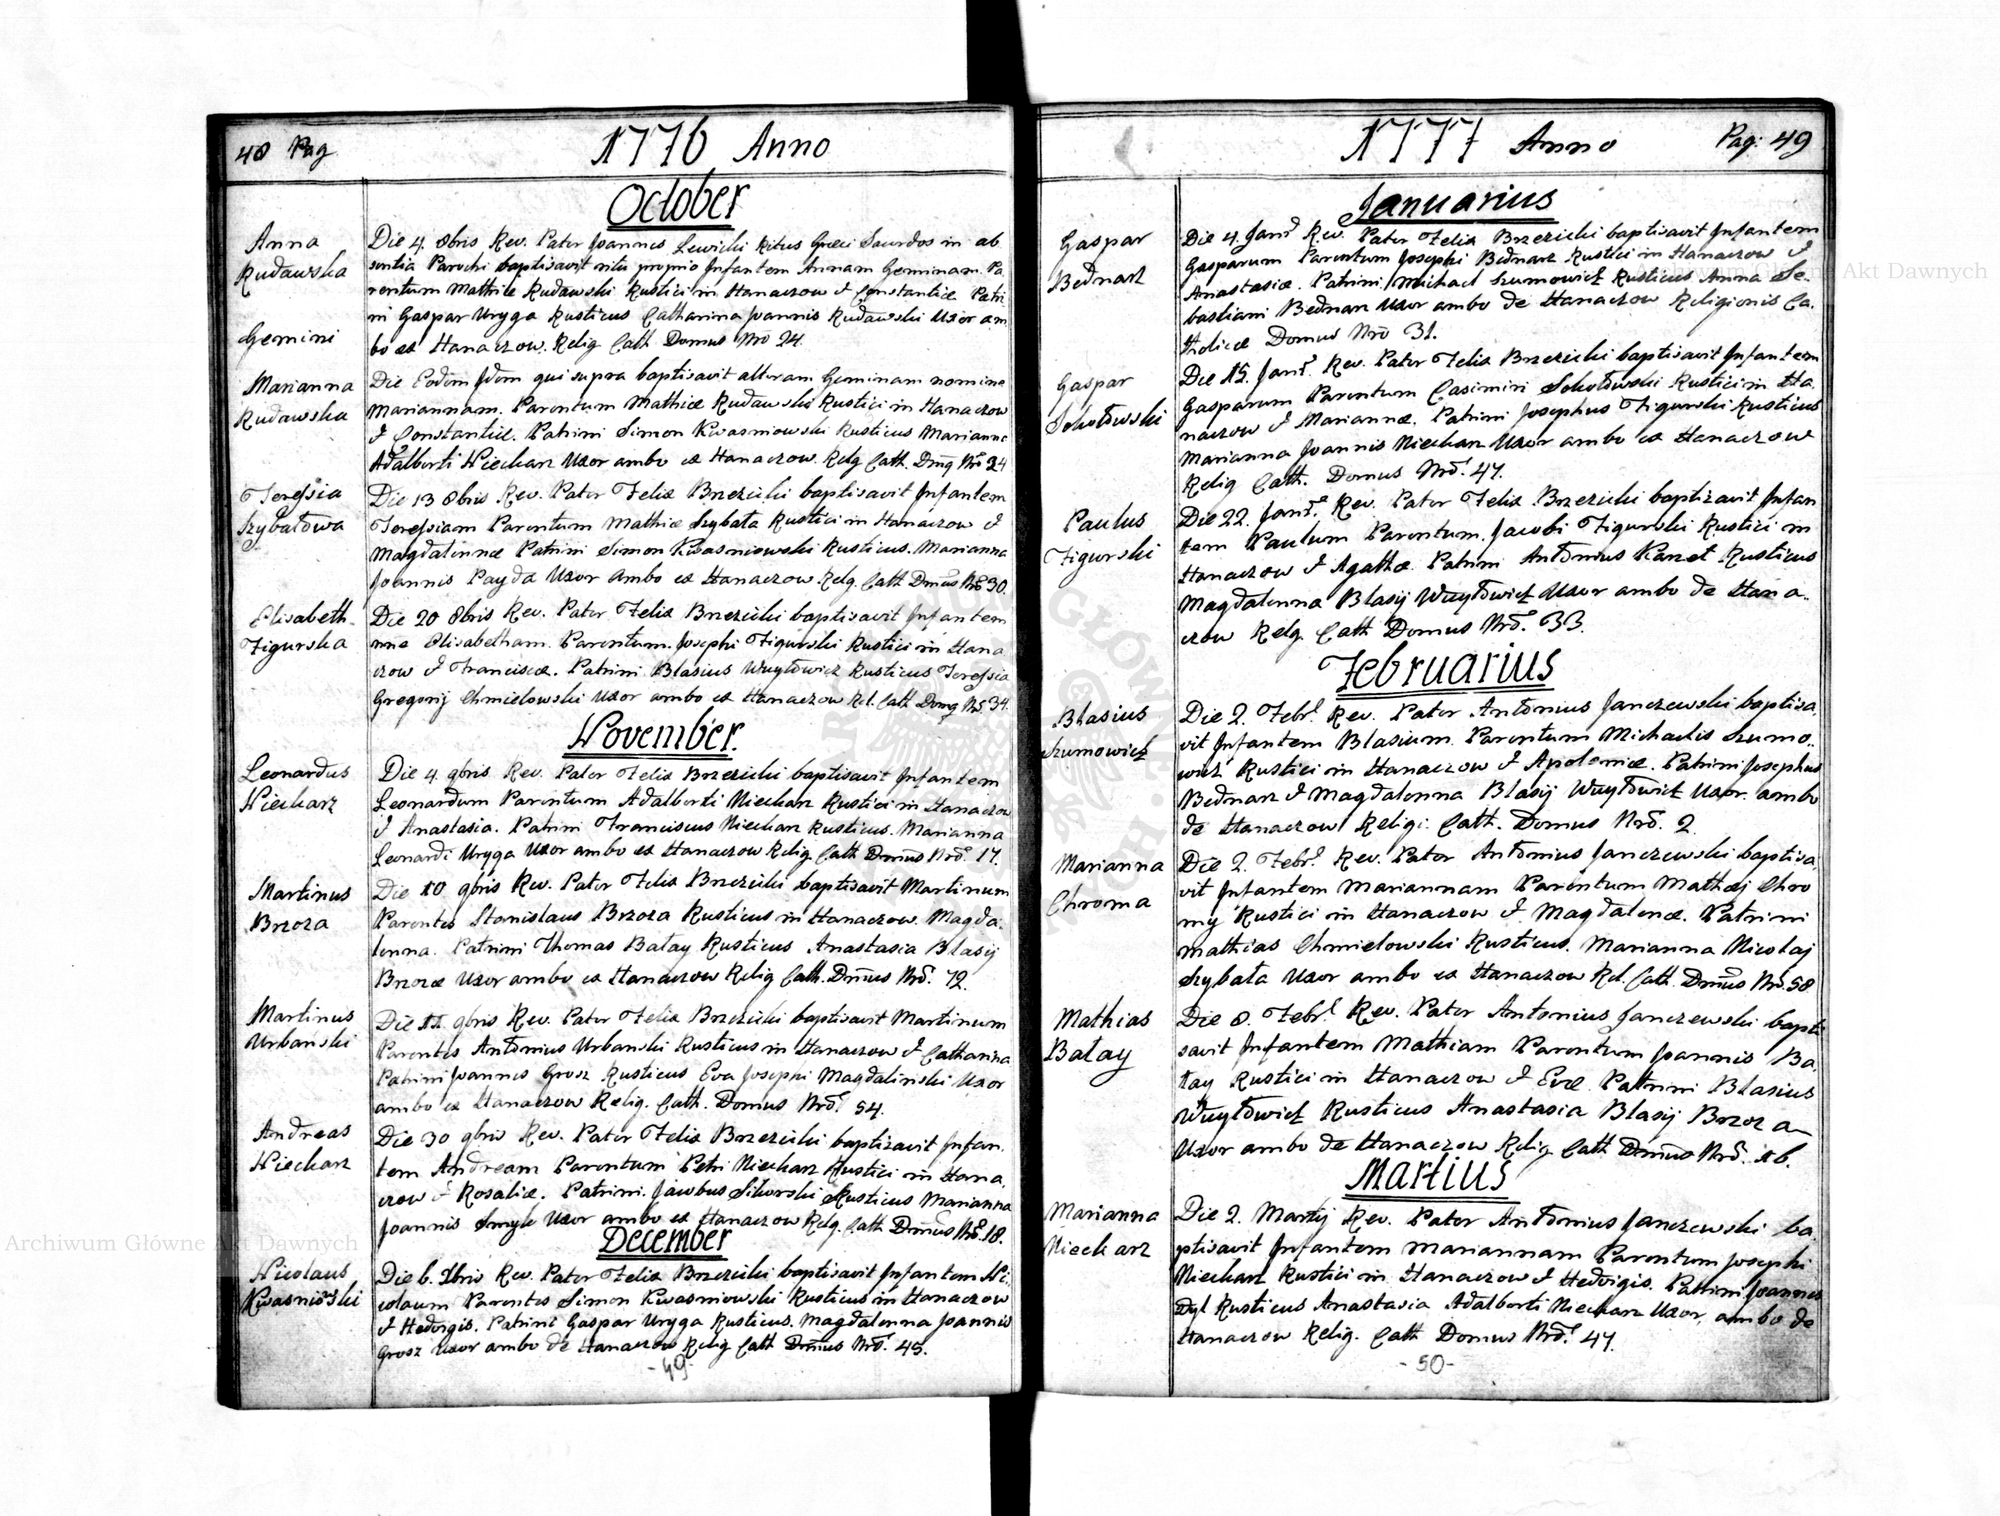 48 Pag
1776 Anno
October
Anna
Rudawska
Gemini
Die 4. 8bris Rev. Pater Joannes Lewicki Ritus Græci Sacerdos in ab
sentia Parochi baptisavit ritu proprio Infantem Annam Geminam. Pa
rentum Mathiæ Rudawski Rustici in Hanaczow & Constantiæ Patri
ni Gaspar Uryga Rusticus Catharina Joannis Rudawski Uxor am
bo ex Hanaczow. Relig Cath Domus Nrō 24.
Marianna
Rudawska
Die Eodem Idem qui supra baptisavit alteram Geminam nomine
Mariannam. Parentum Mathiæ Rudawski Rustici in Hanaczow
& Constantiæ. Patrini Simon Kwasniowski Rusticus Marianna
Adalberti Niecharz Uxor ambo ex Hanaczow. Relg Cath. Dmg Nrō 24
Teressia
Szybałowa
Die 13 8bris Rev. Pater Felix Brzezicki baptisavit Infantem
Teressiam Parentum Mathiæ Szybała Rustici in Hanaczow &
Magdalennæ Patrini Simon Kwasniowski Rusticus. Marianna
Joannis Payda Uxor Ambo ex Hanaczow Relg. Cath Dmūs Nrō 30.
Elisabeth
Figurska
Die 20 8bris Rev. Pater Felix Brzezicki baptisavit Infantem
nne Elisabetham. Parentum. Josephi Figurski Rustici in Hana
czow & Franciscæ. Patrini Blasius Wuytowicz Rusticus Teressia
Gregorij Chmielowski Uxor ambo ex Hanaczow Rel. Cath Dmg Nrō 34.
November.
Leonardus
Niecharz
Die 4. 9bris Rev. Pater Felix Brzezicki baptisavit Infantem
Leonardum Parentum Adalberti Niecharz Rustici in Hanaczow
& Anastasia. Patrini Franciscus Niecharz Rusticus. Marianna
Leonardi Uryga Uxor ambo ex Hanaczow Relig Cath Dmūs Nrō. 17.
Martinus
Brzoza
Die 10 9bris Rev. Pater Felix Brzezicki baptisavit Martinum
Parentes Stanislaus Brzoza Rusticus in Hanaczow. Magda-
lenna. Patrini Thomas Batay Rusticus Anastasia Blasij
Brzozæ Uxor ambo ex Hanaczow Relig Cath. Dmūs Nrō. 72.
Martinus
Urbański
Die 11. 9bris Rev. Pater Felix Brzezicki baptisavit Martinum
Parentes Antonius Urbanski Rusticus in Hanaczow & Catharina
Patrini Joannes Grosz Rusticus Eva Josephi Magdalinski Uxor
ambo ex Hanaczow Relig. Cath. Domus Nrō. 54.
Andreas
Niecharz
Die 30 9bris Rev. Pater Felix Brzezicki baptizavit Infan.
tem Andream Parentum Petri Niecharz Rustici in Hana
czow & Rosaliæ. Patrini. Jacobus Sikorski Rusticus Marianna
Joannis Smyk Uxor ambo ex Hanaczow Relg. Cath Dmūs Nrō. 18.
December
Nicolaus
Kwasniowski
Die 6. Xbris Rev. Pater Felix Brzezicki baptisavit Infantem Ni.
colaum Parentes Simon Kwasniowski Rusticus in Hanaczow
& Hedvigis. Patrini Gaspar Uryga Rusticus. Magdalenna Joannis
Grosz Uxor ambo de Hanaczow Relig Cath Dmūs Nrō. 45.
-49-
1777 Anno
Pag: 49
Januarius
Gaspar
Bednarz
Die 4. Janr̄ Rev. Pater Felix Brzezicki baptisavit Infantem
Gasparum Parentum Josephi Bednarz Rustici in Hanaczow &
Anastasiæ. Patrini Michael Szumowicz Rusticus Anna Se-
bastiani Bednarz Uxor ambo de Hanaczow Religionis Ca.
tholicæ Domus Nrō 31.
Gaspar
Sokołowski
Die 15. Janr̄. Rev. Pater Felix Brzezicki baptisavit Infantem
Gasparum Parentum Casimiri Sokołowski Rustici in Ha.
naczow & Mariannæ. Patrini Josephus Figurski Rusticus
Marianna Joannis Niecharz Uxor ambo ex Hanaczow
Relig Cath. Domus Nrō. 47.
Paulus
Figurski
Die 22. Janr̄. Rev. Pater Felix Brzezicki baptizavit Infan
tem Paulum Parentum. Jacobi Figurski Rustici in
Hanaczow & Agathæ. Patrini Antonius Panet Rusticus
Magdalenna Blasij Wuytowicz Uxor ambo de Hana-
czow Relg. Cath Domus Nrō. 33.
Februarius
Blasius
Szumowicz
Die 2. Febr̄. Rev. Pater Antonius Janczewski baptisa.
vit Infantem Blasium. Parentum Michaelis Szumo..
wicz Rustici in Hanaczow & Apoloniæ. Patrini Josephus
Bednarz & Magdalenna Blasij Wuytowicz Uxor. ambo
de Hanaczow Religi. Cath. Domus Nrō. 2.
Marianna
Chroma
Die 2. Febr̄. Rev. Pater Antonius Janczewski baptisa.
vit Infantem Mariannam Parentum Mathæj Chro
my Rustici in Hanaczow & Magdalenæ. Patrini
Mathias Chmielowski Rusticus. Marianna Nicolaj
Szybała Uxor ambo ex Hanaczow Rel. Cath. Dmūs Nrō. 58
Mathias
Bałay
Die 8. Febr̄. Rev. Pater Antonius Janczewski bapti
savit Infantem Mathiam Parentum Joannis Ba.
łay Rustici in Hanaczow & Evæ. Patrini Blasius
Wuytowicz Rusticus Anastasia Blasij Brzoza
Uxor ambo de Hanaczow Relig Cath Dmūs Nrō. 16.
Martius
Marianna
Niecharz
Die 2. Martij Rev. Pater Antonius Janczewski ba
ptisavit Infantem Mariannam Parentum Josephi
Niecharz Rustici in Hanaczow & Hedvigis. Patrini Joannes
Dyl Rusticus Anastasia Adalberti Niecharz Uxor. ambo de
Hanaczow Relig. Cath Domus Nrō. 47.
-50-
Archiwum Główne Akt Dawnych
Archiwum Główne Akt Dawnych